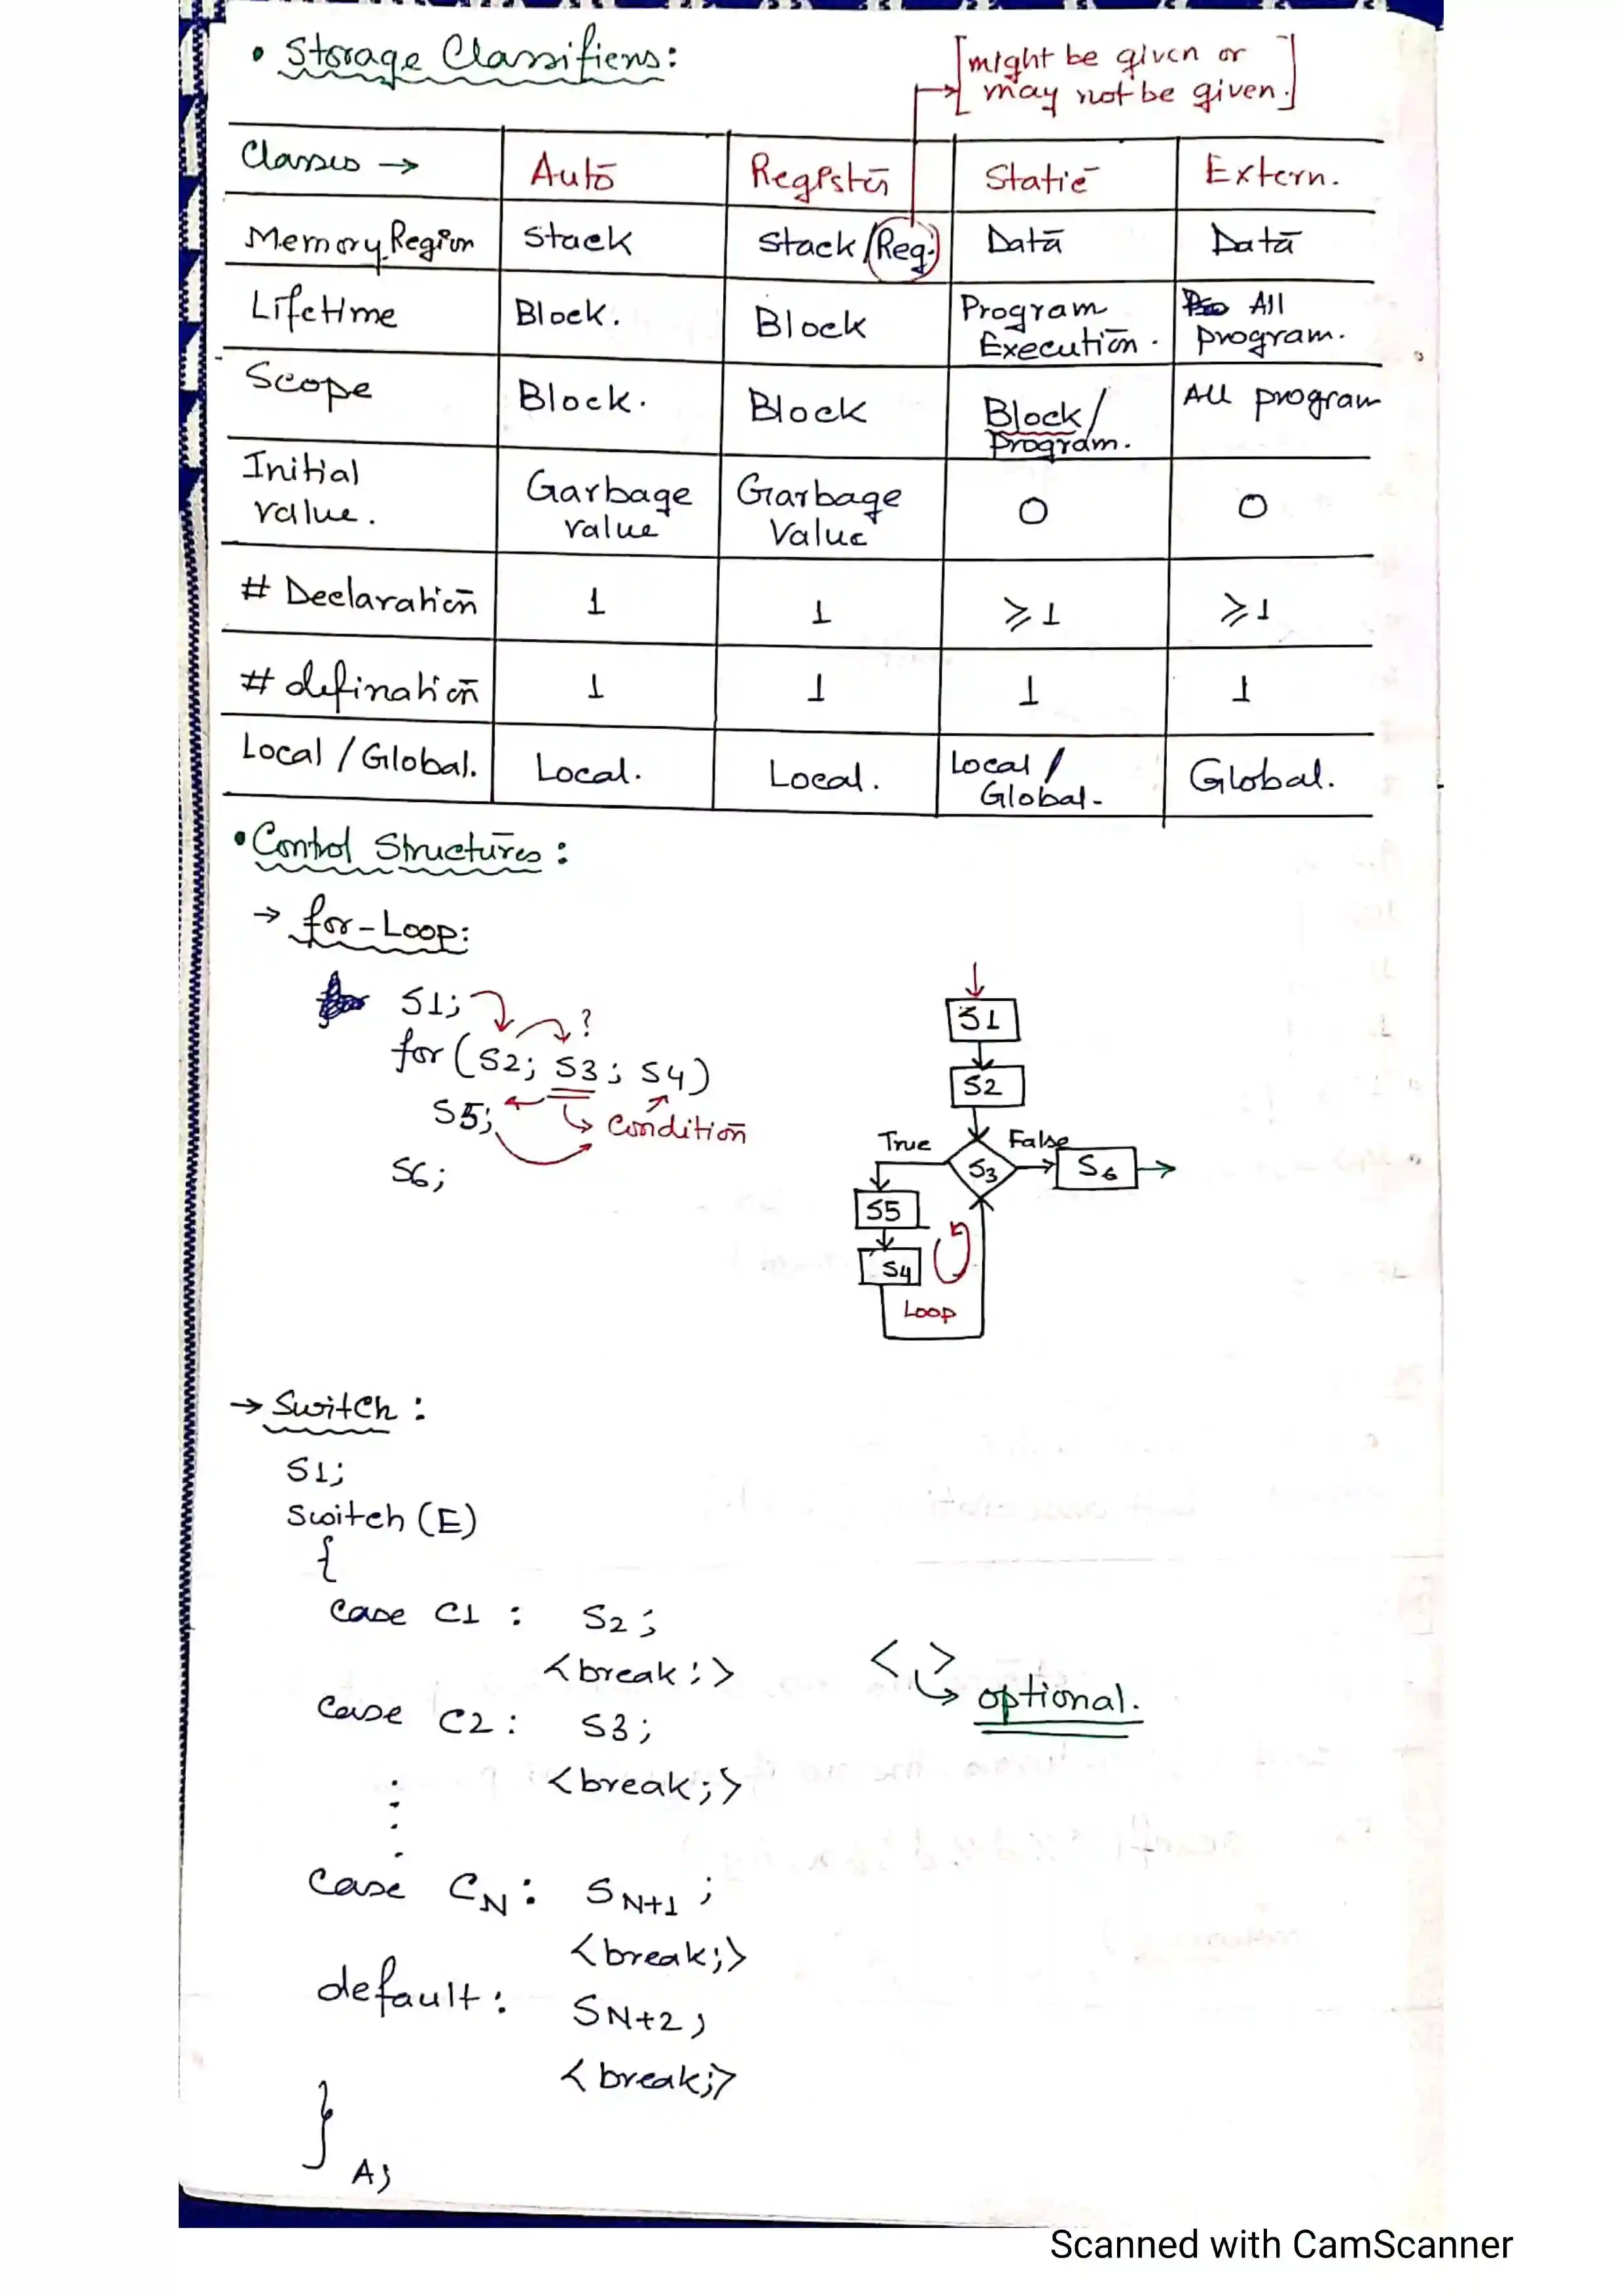 • Storage Classifiers:
[might be given or
may not be given.]
Classes → Auto Register Static Extern.
Memory Region Stack Stack/Reg. Data Data
Lifetime Block. Block Program Execution. All program.
Scope Block. Block Block/Program. All program
Initial value. Garbage value Garbage Value 0 0
# Declaration 1 1 ⩾1 ⩾1
# defination 1 1 1 1
Local / Global. Local. Local. Local / Global. Global.
• Control Structures:
→ for-Loop:
S1;
?
for (S2; S3; S4)
S5;
↳ Condition
S6;
S1
S2
True
False
S3
S6
S5
S4
Loop
→ Switch:
S1;
Switch (E)
{
Case C1 : S2;
<break;>
Case C2 : S3;
<break;>
< >
↳ optional.
Case CN : SN+1 ;
<break;>
default: SN+2;
<break;>
}
A;
Scanned with CamScanner